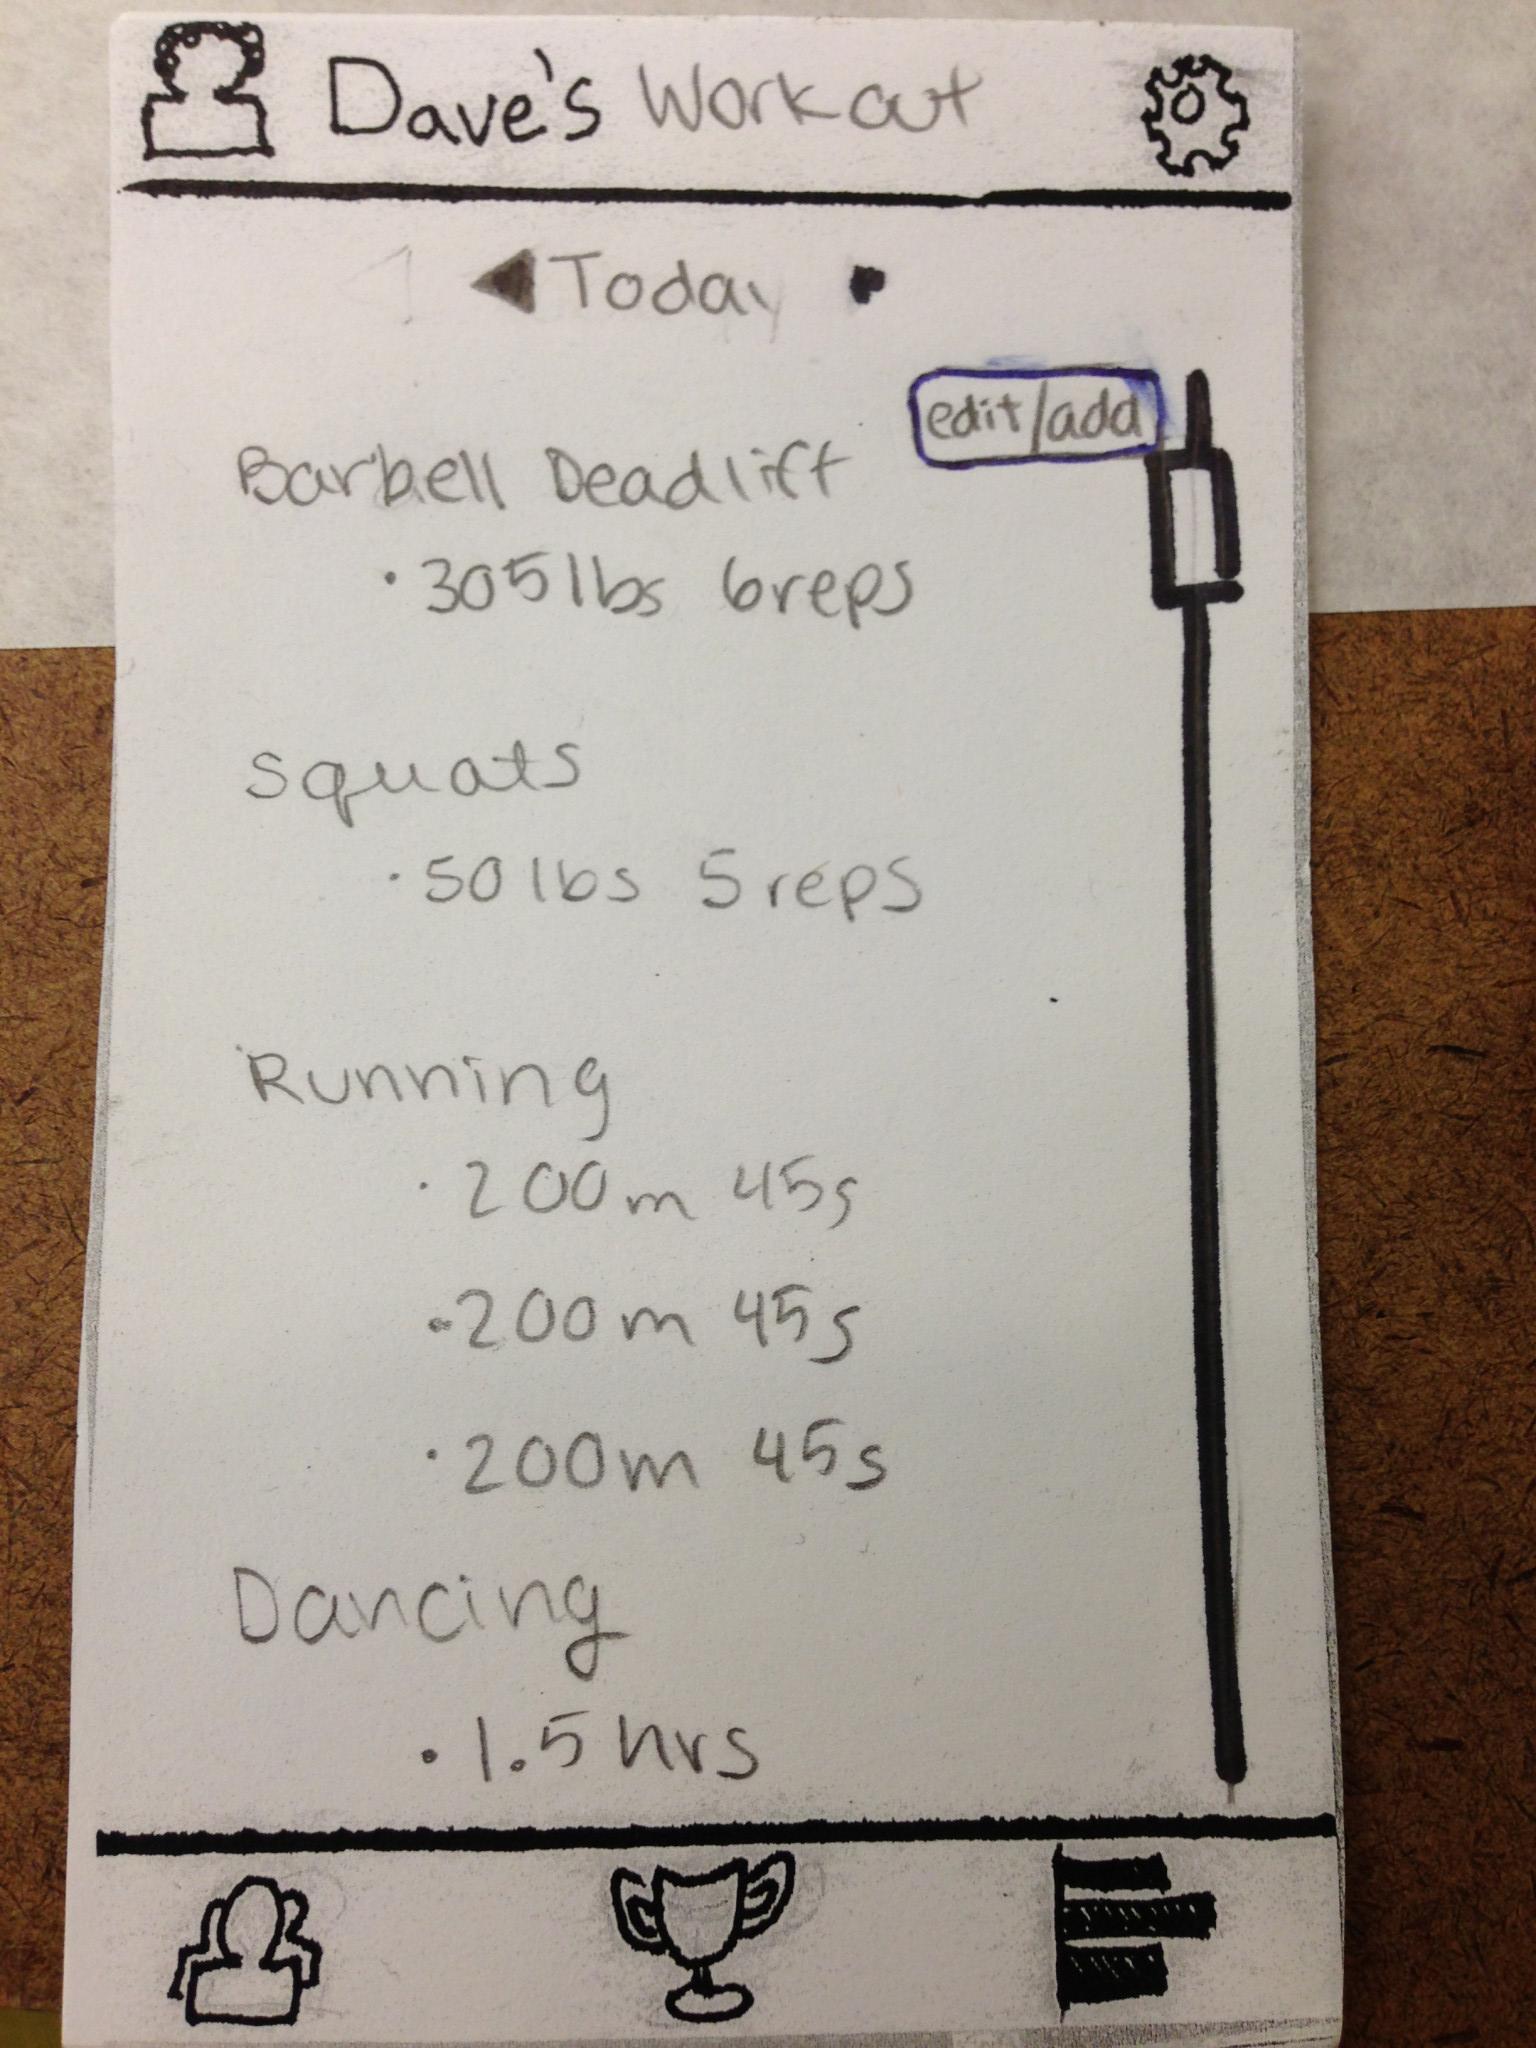 Dave's Workout
Today
edit/add
Barbell Deadlift
·305lbs 6reps
Squats
·50lbs 5reps
Running
·200m 45s
·200m 45s
·200m 45s
Dancing
·1.5hrs